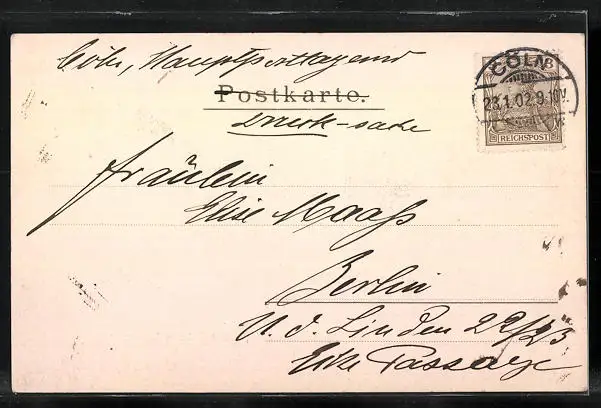 Cöln, Hauptpostlagernd
Postkarte.
Druck-sache
CÖLN
23.1.02.9-10V.
REICHSPOST
Fräulein
Elise Maaß
Berlin
U. d. Linden 22/23
Ecke Passage